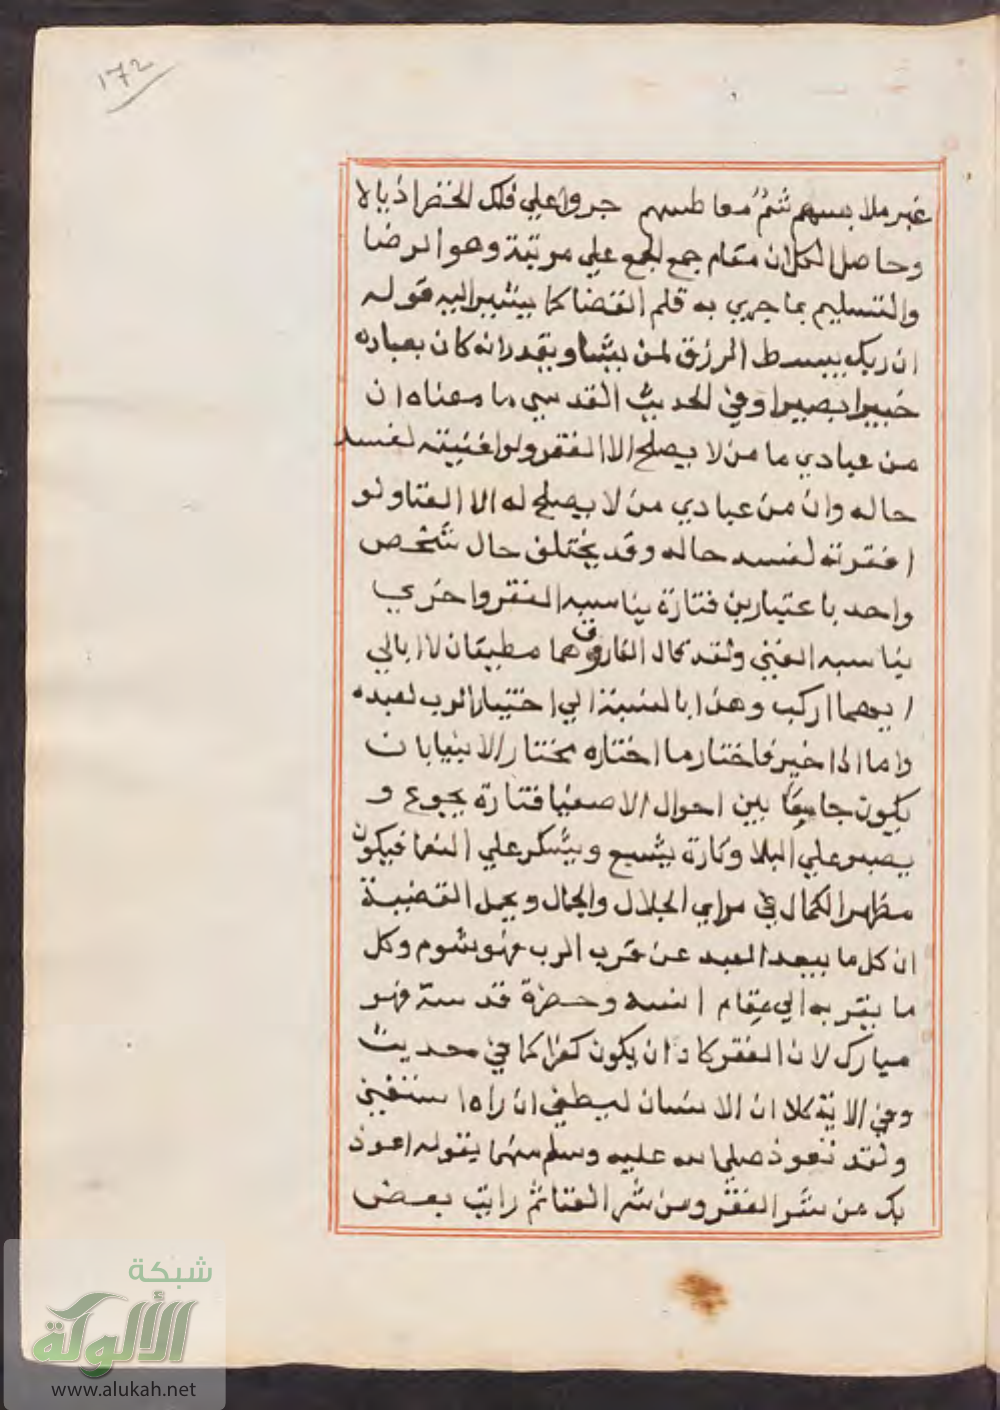 ١٧٢
غبر ملابسهم شمٌ معاطسهم جروا علي فلك الخضرا ذيالا
وحاصل الكل ان مقام جمع الجمع علي مرتبة وهو الرضا
والتسليم بما جري به قلم القضا كما يشير اليه قوله
ان ربك يبسط الرزق لمن يشا ويقدر انه كان بعباده
خبيرا بصيرا وفي الحديث القدسي ما معناه ان
من عبادي ما من لا يصلح الا الفقر ولو اغنيته لفسد
حاله وان من عبادي من لا يصلح له الا الغنا ولو
افقرته لفسد حاله وقد يختلف حال شخص
واحد باعتبارين فتارة يناسبه الفقر واخري
يناسبه الغني ولقد قال الفاروق هما مطيتان لا ابالي
ايهما اركب وهذا بالنسبة الي اختيار الرب لعبده
واما اذا خير فاختار ما اختاره مختار الانبيا بان
يكون جامعًا بين احوال الاصفيا فتارة يجوع و
يصبر علي البلا وتارة يشبع ويشكر علي النعما فيكون
مظهر الكمال في مراي الجلال والجمال ويجمل القضية
ان كل ما يبعد العبد عن قرب الرب فهو شوم وكل
ما يقربه الي مقام انسه وحضرة قدسه فهو
مبارك لان الفقر كاد ان يكون كفرا كما في حديث
وفي الاية كلا ان الانسان ليطغي ان راه استغني
ولقد تعوذ صلي الله عليه وسلم منهما بقوله اعوذ
بك من شر الفقر ومن شر الغنا ثم رايت بعض
شبكة
الألوكة
www.alukah.net